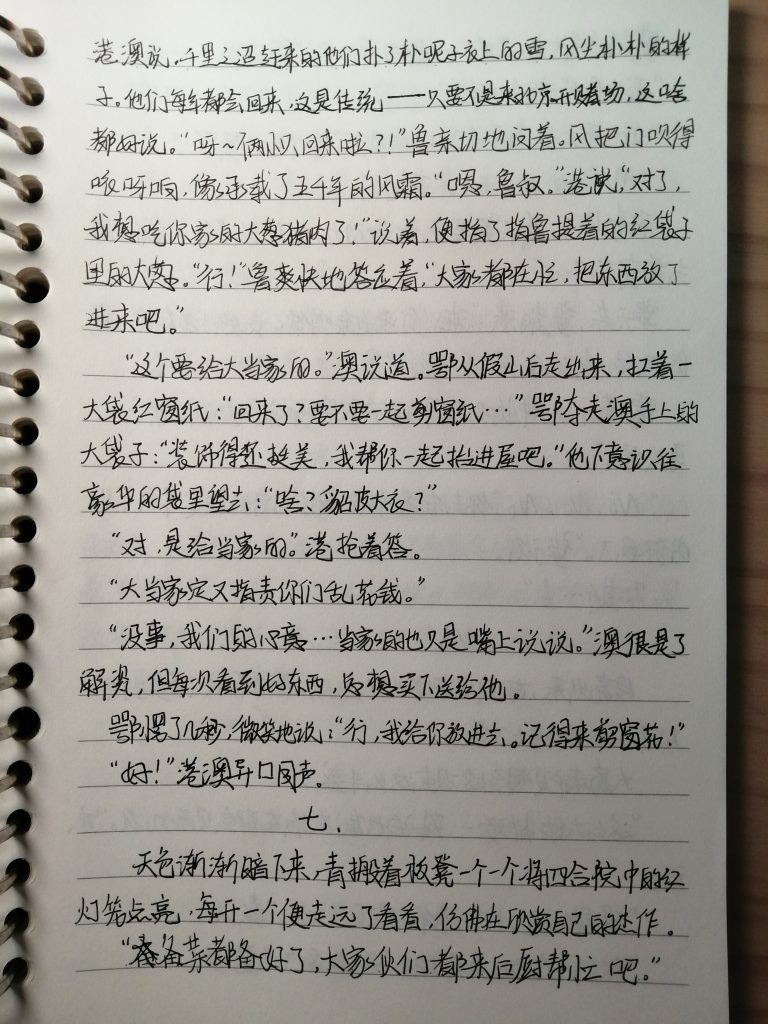 港澳说，千里迢迢赶来的他们扑了朴呢子衣上的雪，风尘朴朴的样
子。他们每年都会回来，这是传统——只要不是来北京开赌场，这啥
都好说。“呀～俩小只回来啦？！”鲁亲切地问着。风把门吹得
吱呀响，像承载了五千年的风霜。“嗯，鲁叔。”港说，“对了，
我想吃你家的大葱猪肉了！”说着，便指了指鲁提着的红袋子
里的大葱。“行！”鲁爽快地答应着，“大家都在忙，把东西放了
进来吧。”
“这个要给大当家的。”澳说道。鄂从假山后走出来，扛着一
大袋红窗纸：“回来了？要不要一起剪窗纸…”鄂夺走澳手上的
大袋子：“装饰得还挺美，我帮你一起抬进屋吧。”他下意识往
豪华的袋里望去：“啥？貂皮大衣？”
“对，是给当家的。”港抢着答。
“大当家定又指责你们乱花钱。”
“没事，我们的心意…当家的也只是嘴上说说。”澳很是了
解爹，但每次看到好东西，总想买下送给他。
鄂愣了几秒，微笑地说：“行，我给你放进去。记得来剪窗花！”
“好！”港澳异口同声。
七.
天色渐渐暗下来，青搬着板凳一个一个将四合院中的红
灯笼点亮，每开一个便走远了看看，仿佛在欣赏自己的杰作。
“备菜都备好了，大家伙们都来后厨帮忙吧。”